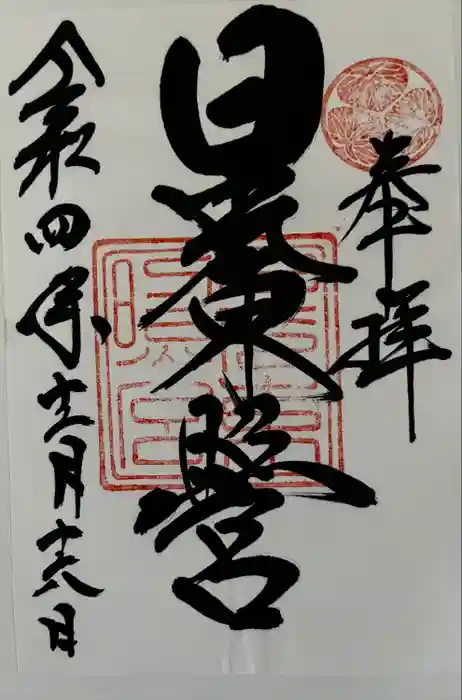 奉拝
日光東照宮
令和四年十二月十六日